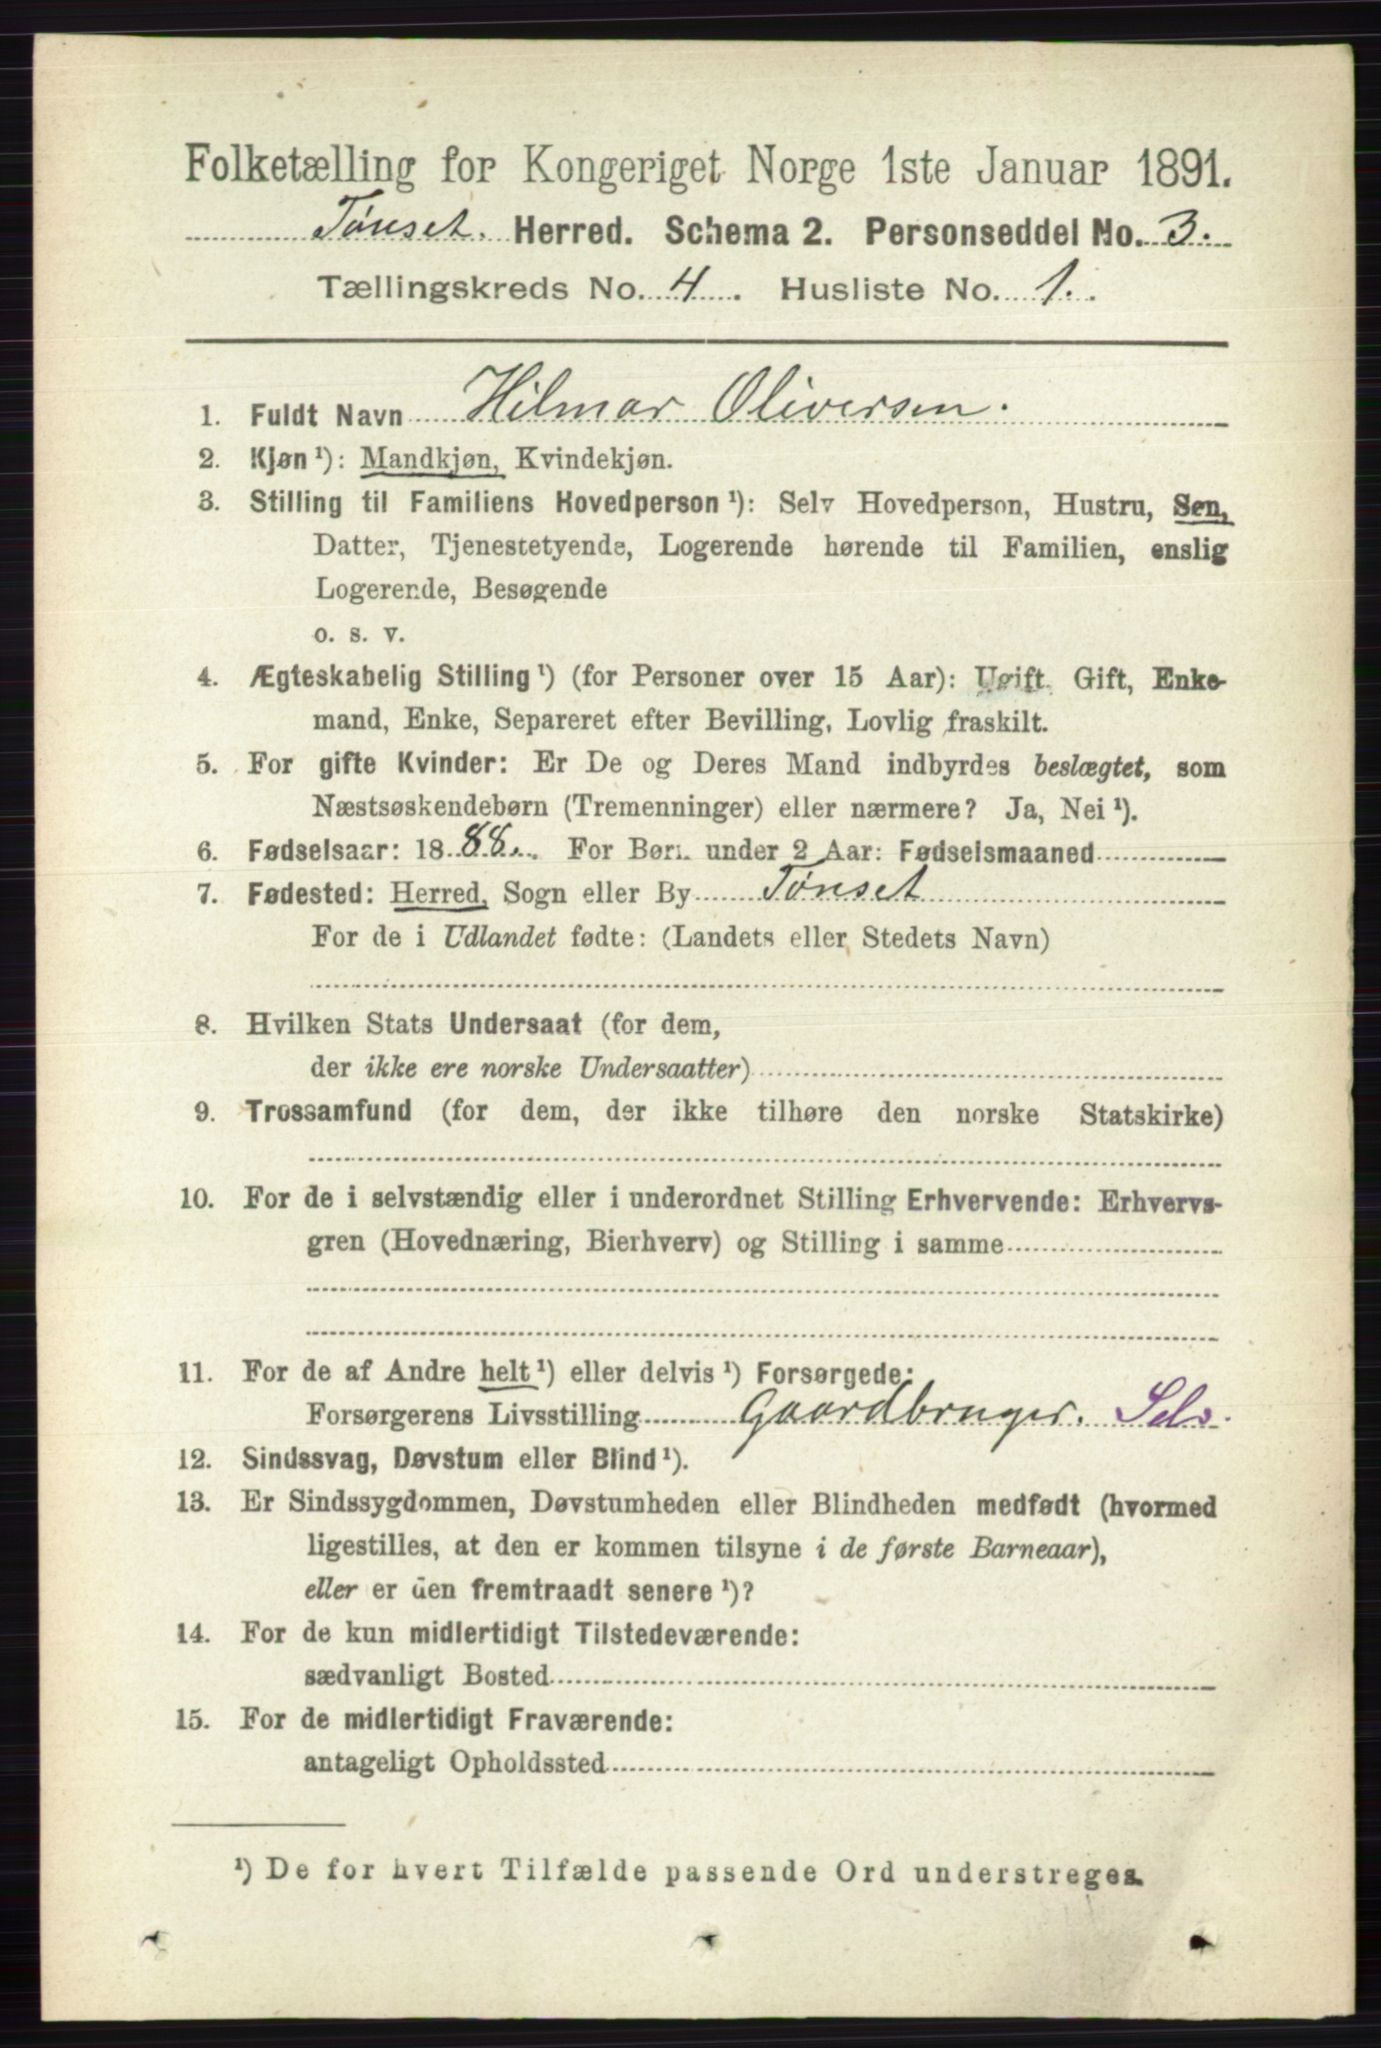 Folketælling for Kongeriget Norge 1ste Januar 1891.
Tønset. Herred. Schema 2. Personseddel No. 3.
Tællingskreds No. 4. Husliste No. 1.
1. Fuldt Navn Hilmar Oliversen.
2. Kjøn ¹): Mandkjøn, Kvindekjøn.
3. Stilling til Familiens Hovedperson ¹): Selv Hovedperson, Hustru, Søn,
Datter, Tjenestetyende, Logerende hørende til Familien, enslig
Logerende, Besøgende
o. s. v.
4. Ægteskabelig Stilling ¹) (for Personer over 15 Aar): Ugift, Gift, Enke-
mand, Enke, Separeret efter Bevilling, Lovlig fraskilt.
5. For gifte Kvinder: Er De og Deres Mand indbyrdes beslægtet, som
Næstsøskendebørn (Tremenninger) eller nærmere? Ja, Nei ¹).
6. Fødselsaar: 1888. For Børn under 2 Aar: Fødselsmaaned
7. Fødested: Herred, Sogn eller By Tønset
For de i Udlandet fødte: (Landets eller Stedets Navn)
8. Hvilken Stats Undersaat (for dem,
der ikke ere norske Undersaatter)
9. Trossamfund (for dem, der ikke tilhøre den norske Statskirke)
10. For de i selvstændig eller i underordnet Stilling Erhvervende: Erhvervs-
gren (Hovednæring, Bierhverv) og Stilling i samme
11. For de af Andre helt ¹) eller delvis ¹) Forsørgede:
Forsørgerens Livsstilling Gaardbruger. Selv.
12. Sindssvag, Døvstum eller Blind ¹).
13. Er Sindssygdommen, Døvstumheden eller Blindheden medfødt (hvormed
ligestilles, at den er kommen tilsyne i de første Barneaar),
eller er den fremtraadt senere ¹)?
14. For de kun midlertidigt Tilstedeværende:
sædvanligt Bosted
15. For de midlertidigt Fraværende:
antageligt Opholdssted
¹) De for hvert Tilfælde passende Ord understreges.